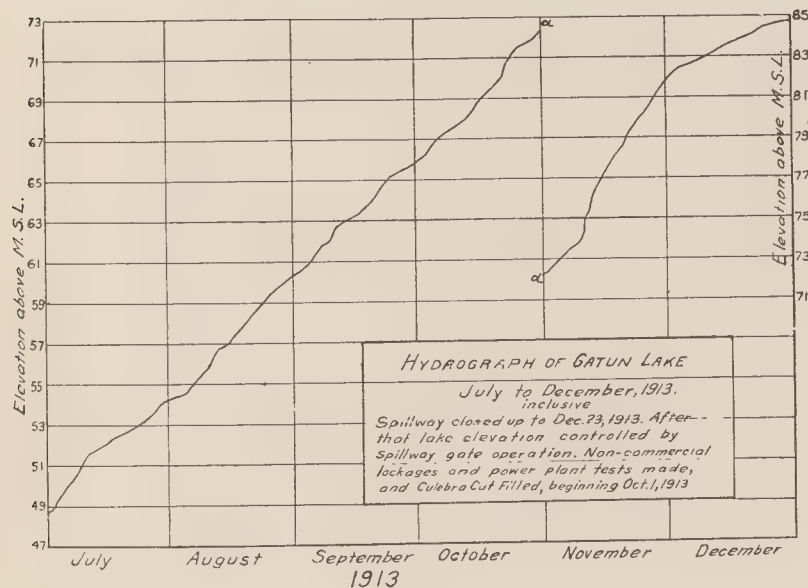 73
71
69
67
65
63
61
59
57
55
53
51
49
47
Elevation above M.S.L.
a
a
85
83
81
79
77
75
73
71
Elevation above M.S.L.
HYDROGRAPH OF GATUN LAKE
July to December, 1913.
inclusive
Spillway closed up to Dec. 23, 1913. After
that lake elevation controlled by
spillway gate operation. Non-commercial
lockages and power plant tests made,
and Culebra Cut Filled, beginning Oct. 1, 1913
July August September October November December
1913